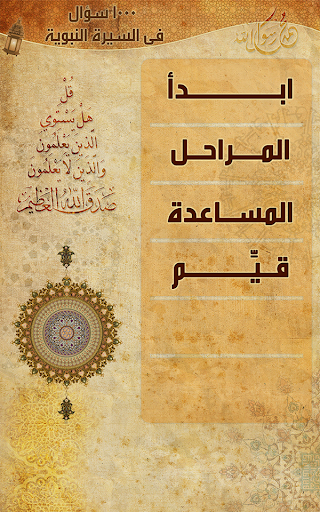 ١٠٠٠ سؤال
فى السيرة النبوية
محمد رسول الله
قُلْ
هَلْ يَسْتَوِي
الَّذِينَ يَعْلَمُونَ
وَالَّذِينَ لَا يَعْلَمُونَ
صدق الله العظيم
ابــدأ
المراحل
المساعدة
قيِّم